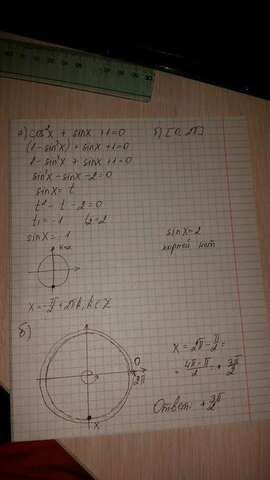 а) cos²x + sinx + 1 = 0   б) [0, 2π]
(1 - sin²x) + sinx + 1 = 0
1 - sin²x + sinx + 1 = 0
sin²x - sinx - 2 = 0
sinx = t
t² - t - 2 = 0
t₁ = -1   t₂ = 2
sinx = -1   sinx = 2
корней нет
x = -π/2 + 2πk, k ∈ Z
б)
0
2π
x
x = 2π - π/2 =
= (4π - π)/2 = + 3π/2
Ответ: + 3π/2